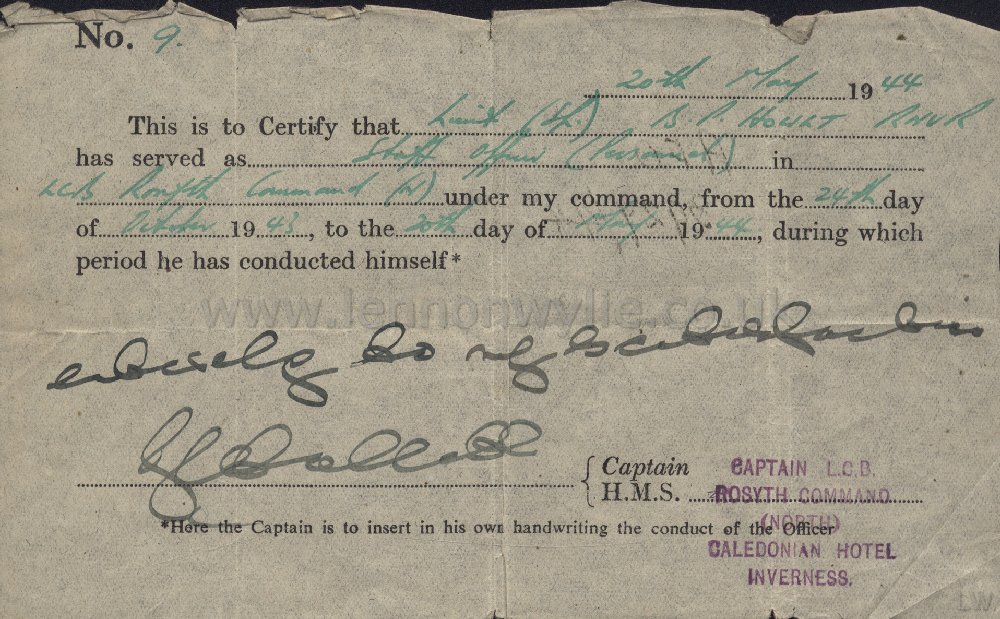 No. 9.
20th May 1944
This is to Certify that Lieut (Sp.) B. P. RNVR
has served as Staff Officer (Personnel) in
LCB Rosyth Command (N) under my command, from the 24th day
of October 1943, to the 20th day of May 1944, during which
period he has conducted himself*
www.lennonwylie.co.uk
entirely to my satisfaction
Captain CAPTAIN L.C.B.
H.M.S. ROSYTH COMMAND
(NORTH)
*Here the Captain is to insert in his own handwriting the conduct of the Officer
CALEDONIAN HOTEL
INVERNESS.
LW